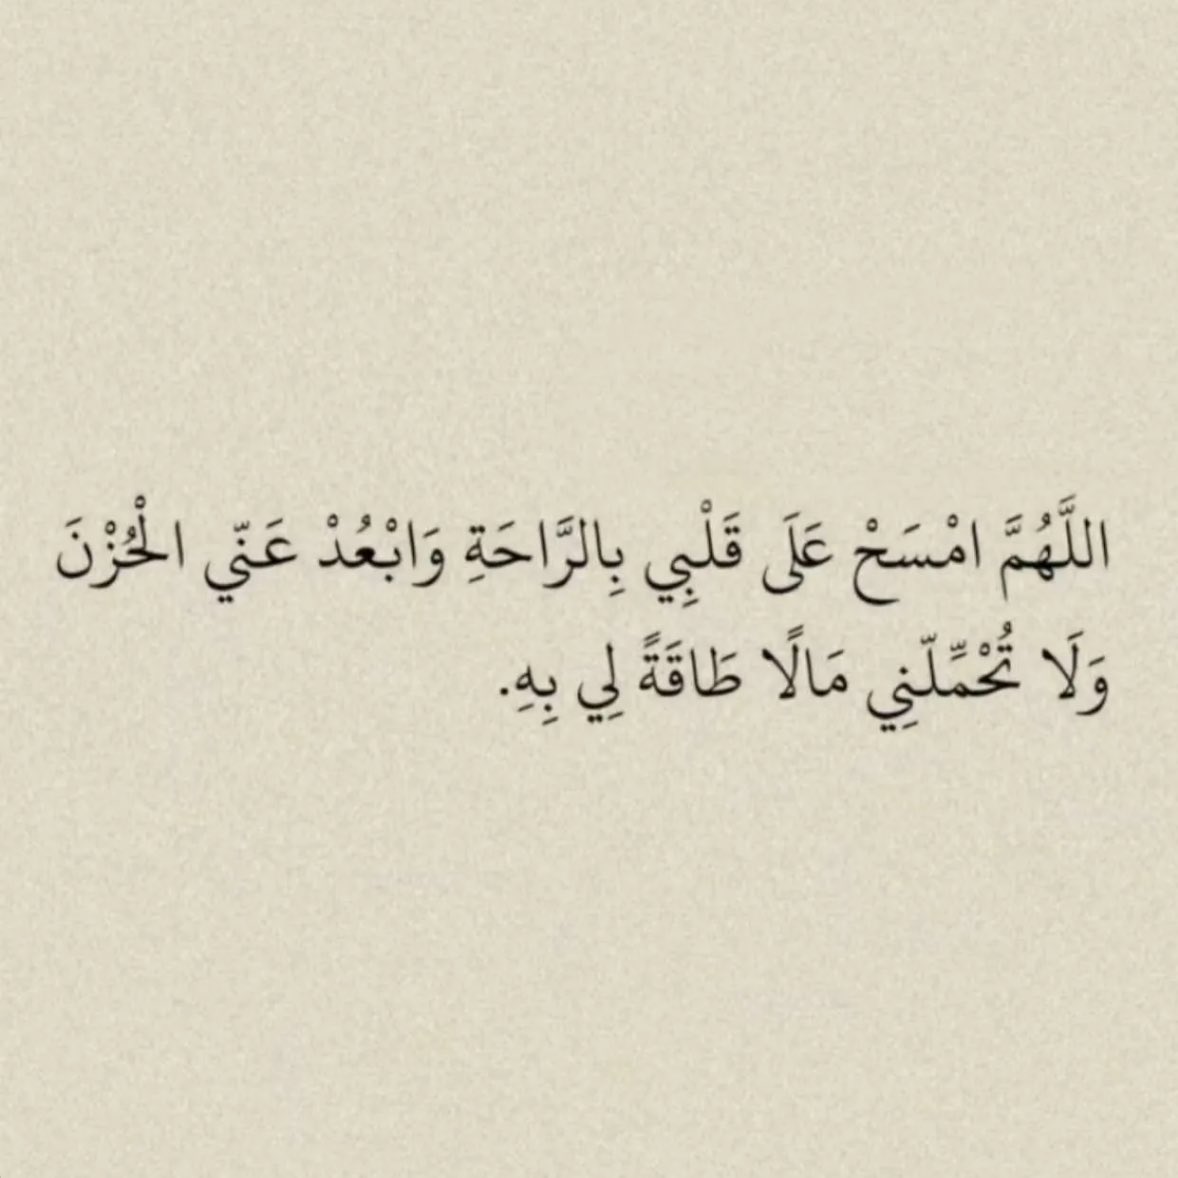 اللَّهُمَّ امْسَحْ عَلَى قَلْبِي بِالرَّاحَةِ وَابْعُدْ عَنّي الْحُزْنَ
وَلَا تُحْمِّلّنِي مَالًا طَاقَةً لِي بِهِ.